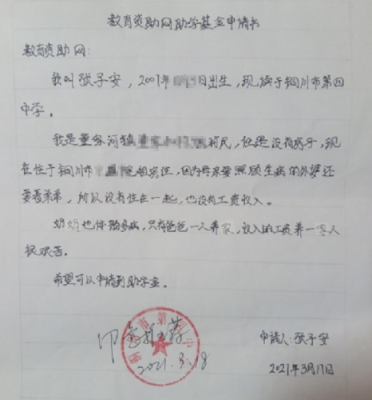 教育资助网助学基金申请书
教育资助网:
我叫张子安,2001年 出生,现就读于铜川市第四
中学。
我是董家河镇 村民,但是没有房子,现
在住于铜川市 租房住,因为母亲要照顾生病的外婆还
要看弟弟,所以没有住在一起,也没有工资收入。
奶奶也体弱多病,只有爸爸一人养家,收入微工资养一家人
很艰苦。
希望可以申请到助学金。
2021.3.18
申请人:张子安
2021年3月17日